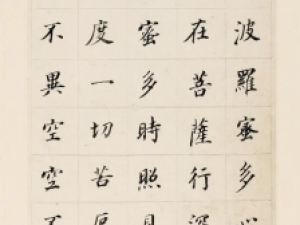 波羅蜜多心
在菩薩行深
蜜多時照見
度一切苦厄
不異空空不